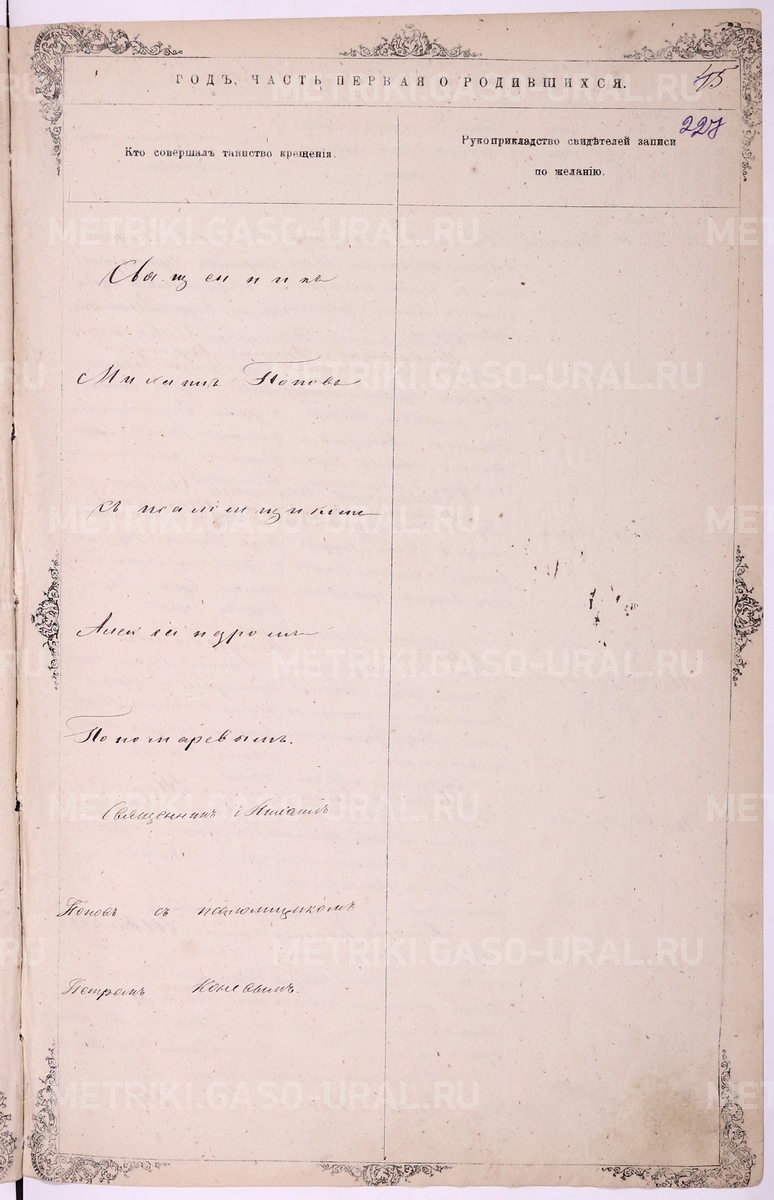 ГОДЪ, ЧАСТЬ ПЕРВАЯ О РОДИВШИХСЯ.
45
227
Кто совершалъ таинство крещенія.
Рукоприкладство свидѣтелей записи
по желанію.
Священникъ
Михаилъ Поповъ
съ псаломщикомъ
Александромъ
Пономаревымъ.
Священникъ Михаилъ
Поповъ съ псаломщикомъ
Петромъ
METRIKI.GASO-URAL.RU